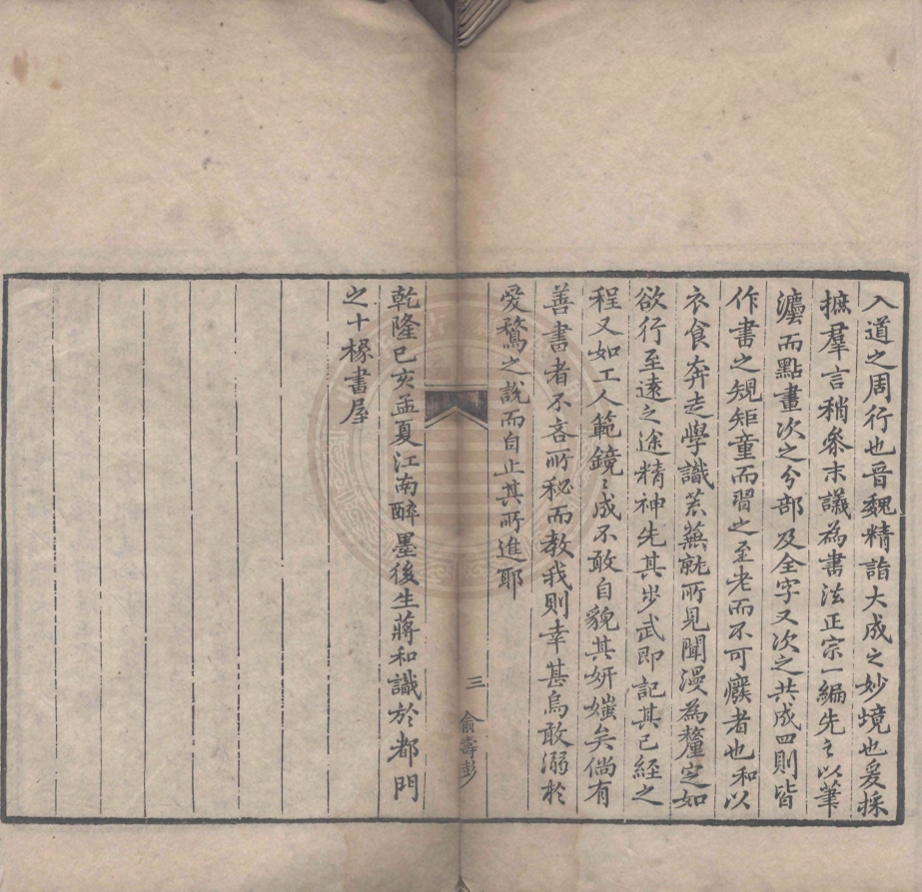 入道之周行也晉魏精詣大成之妙境也爰採
摭羣言稍參末議為書法正宗一編先之以筆
灋而點畫次之分部及全字又次之共成四則皆
作書之規矩童而習之至老而不可癈者也和以
衣食奔走學識荒蕪就所見聞漫為釐定如
欲行至遠之途精神先其步武即記其已經之
程又如工人範鏡〻成不敢自貌其妍媸矣倘有
善書者不吝所秘而教我則幸甚烏敢溺於
愛鶩之說而自止其所進耶
三
俞壽彭
乾隆己亥孟夏江南醉墨後生蔣和識於都門
之十椽書屋